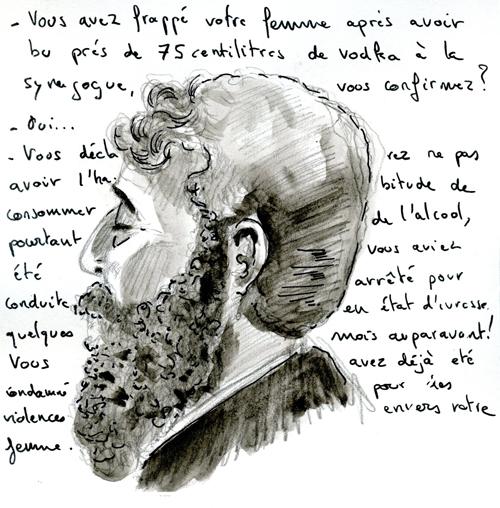 - Vous avez frappé votre femme après avoir
bu prés de 75 centilitres de vodka à la
synagogue, vous confirmez ?
- Oui...
- Vous décla rez ne pas
avoir l'ha bitude de
consommer de l'alcool,
pourtant vous aviez
été arrêté pour
conduite en état d'ivresse
quelques mois auparavant!
Vous avez déjà été
condamné pour des
violences envers votre
femme.